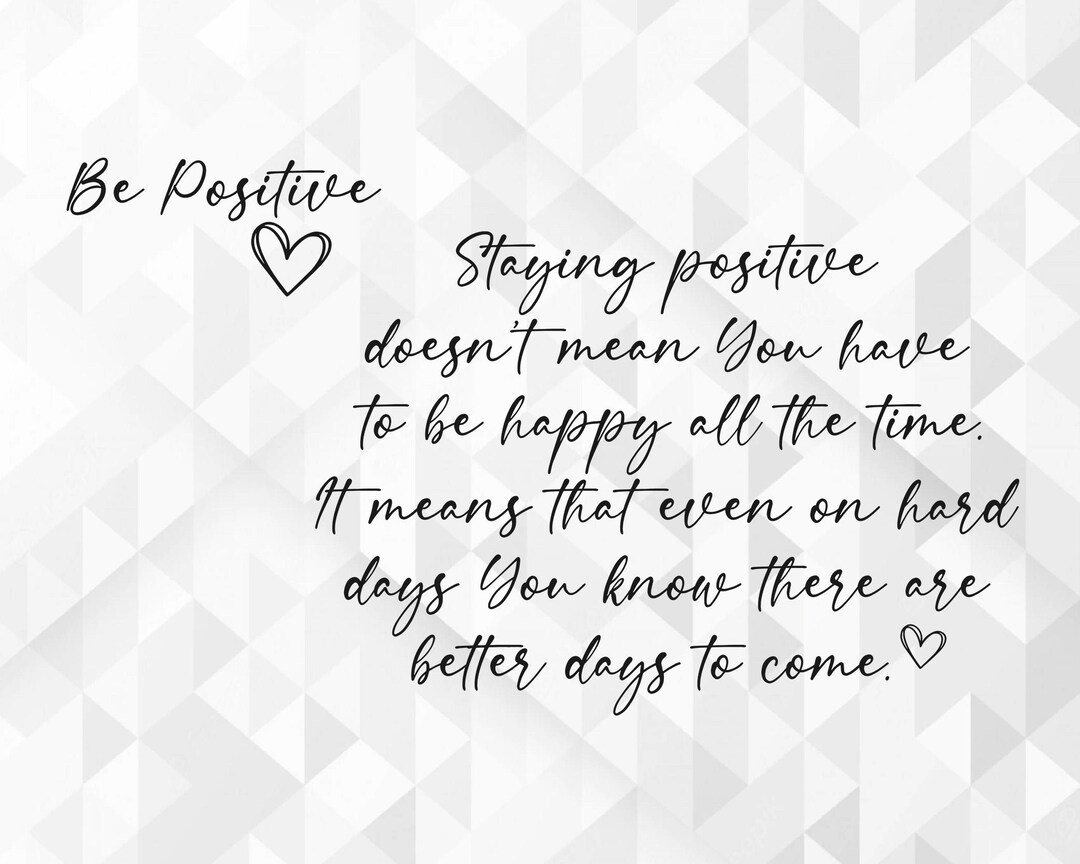 Be Positive
Staying positive
doesn't mean You have
to be happy all the time.
It means that even on hard
days You know there are
better days to come.